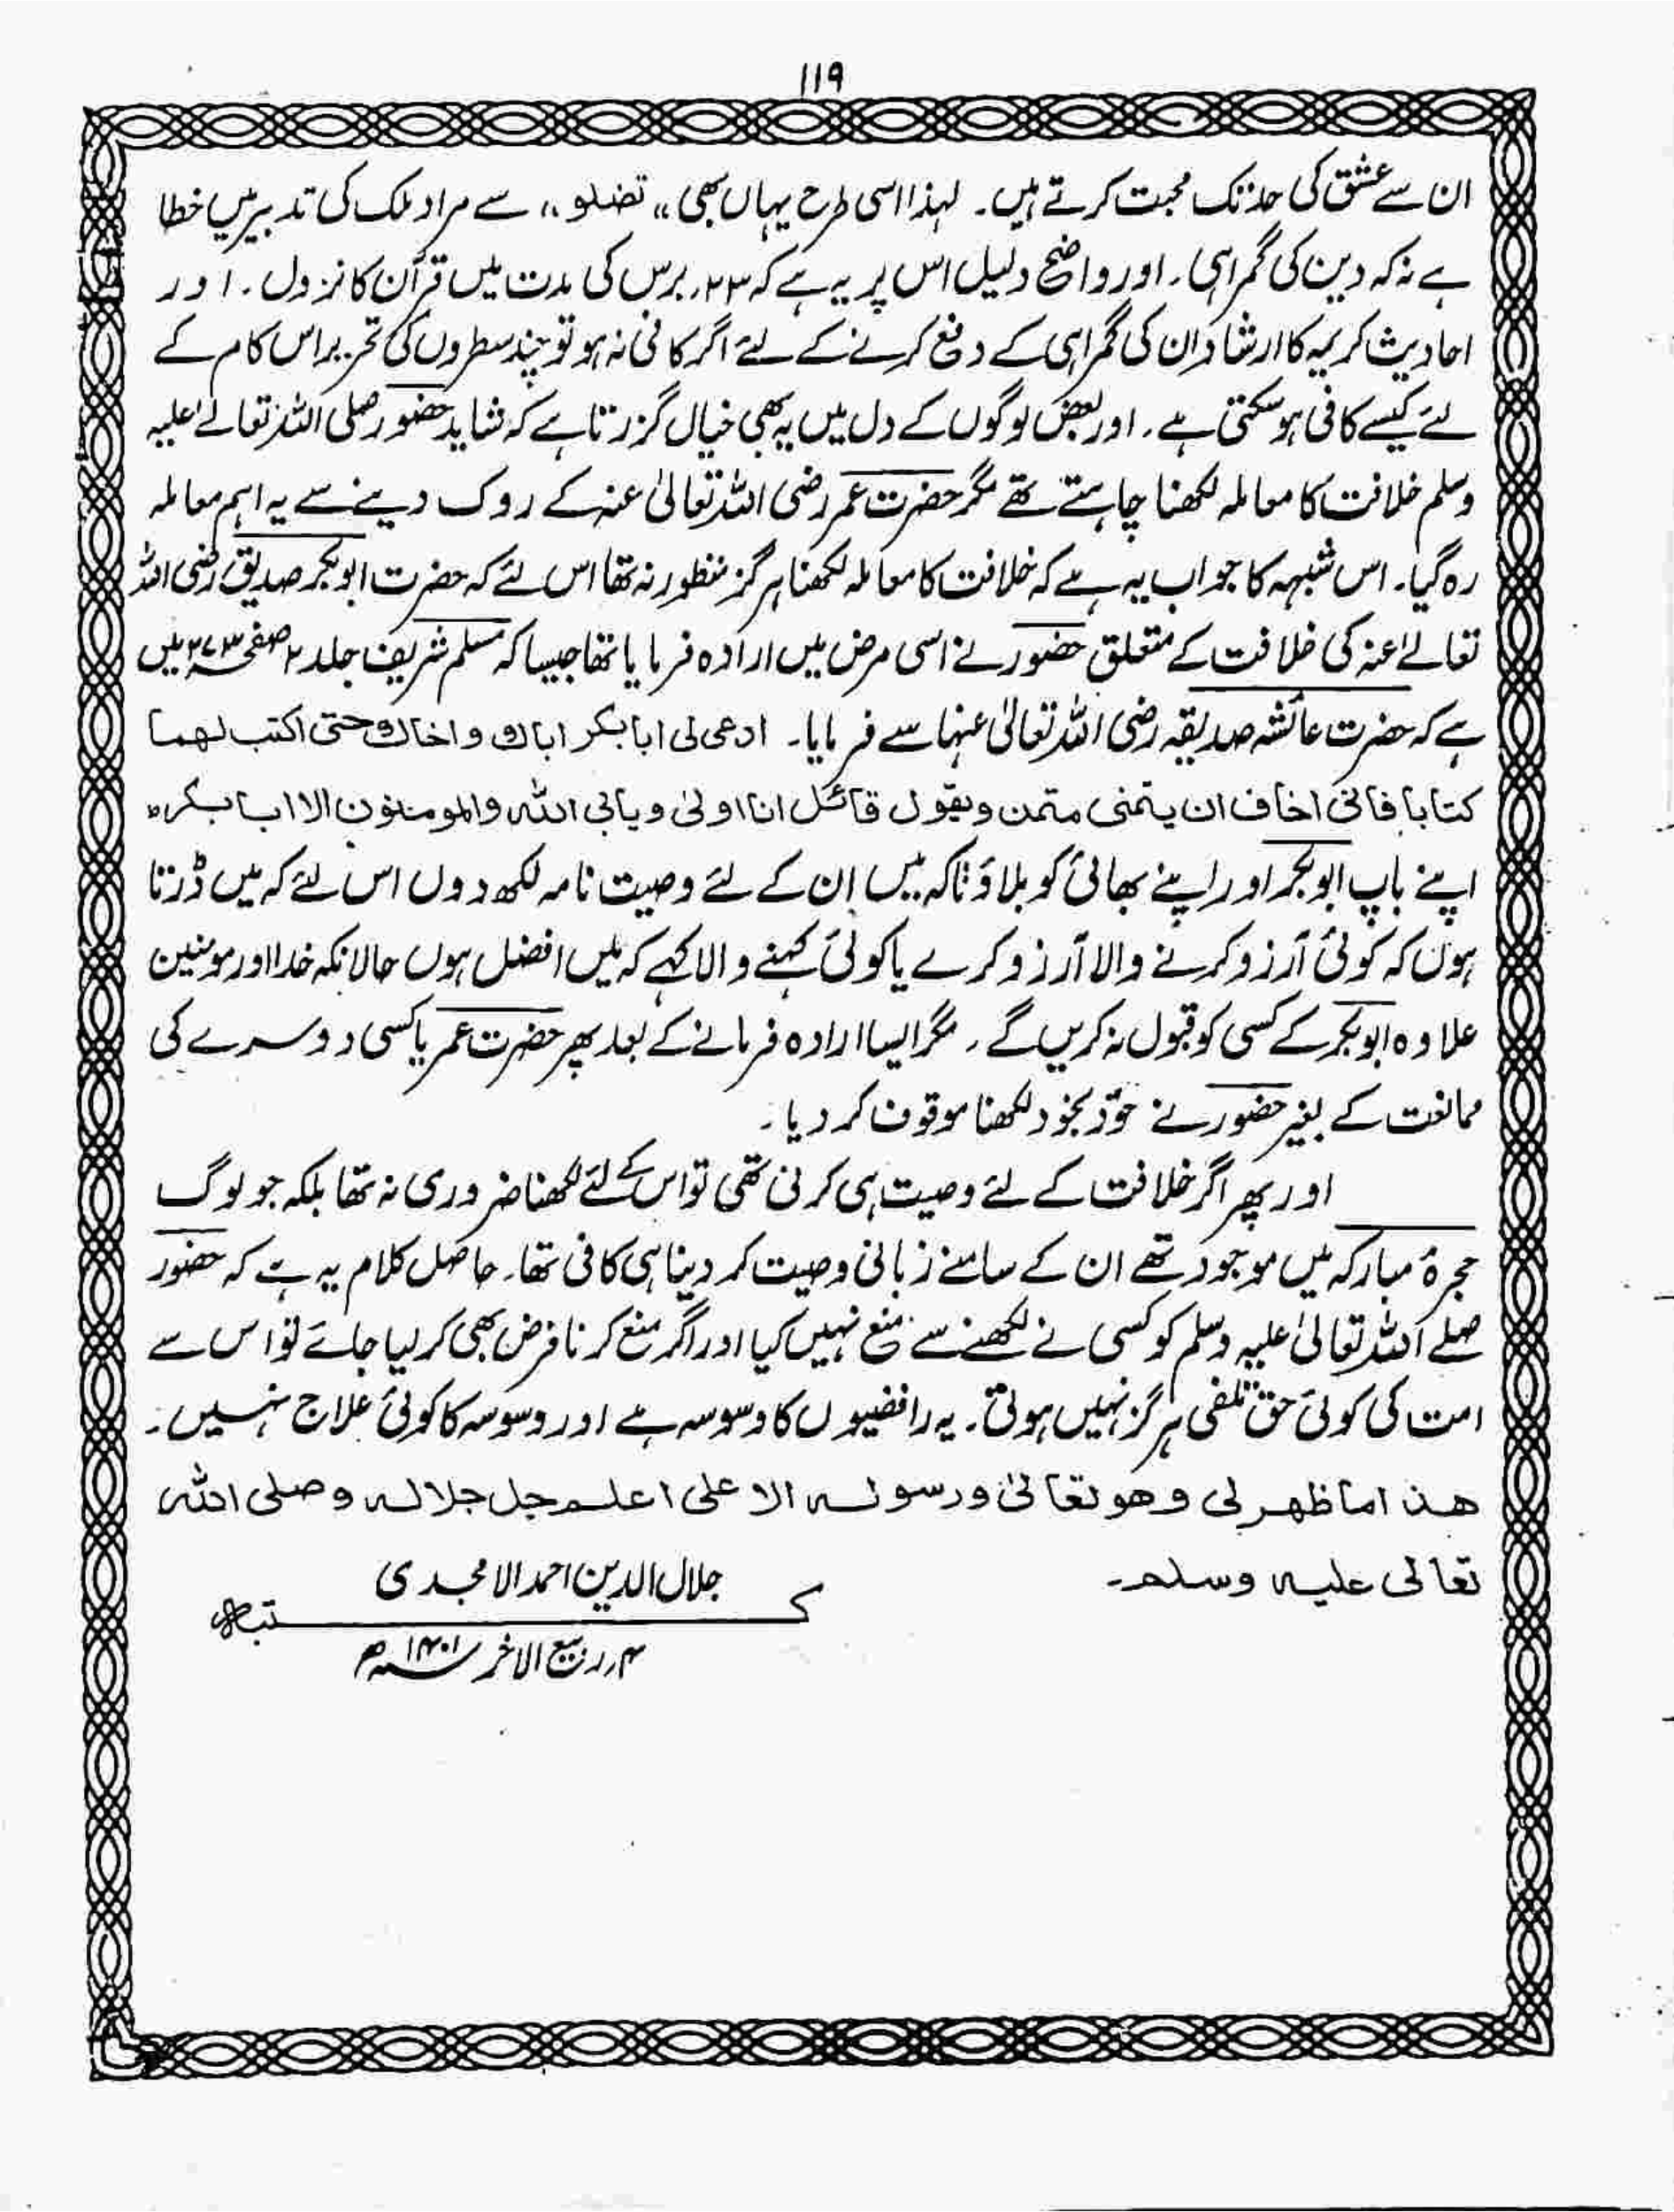 ۱۱۹
ان سے عشق کی حد تک محبت کرتے ہیں۔ لہذا اسی طرح یہاں بھی ،، تضلو ،، سے مراد ملک کی تدبیر میں خطا
ہے نہ کہ دین کی گمراہی۔ اور واضح دلیل اس پر یہ ہے کہ ۲۳، برس کی مدت میں قرآن کا نزول۔ اور
احادیث کریمہ کا ارشاد ان کی گمراہی کے دفع کرنے کے لئے اگر کافی نہ ہو تو چند سطروں کی تحریر اس کام کے
لئے کیسے کافی ہو سکتی ہے۔ اور بعض لوگوں کے دل میں یہ بھی خیال گزرتا ہے کہ شاید حضور صلی اللہ تعالےٰ علیہ
وسلم خلافت کا معاملہ لکھنا چاہتے تھے مگر حضرت عمر رضی اللہ تعالیٰ عنہ کے روک دینے سے یہ اہم معاملہ
رہ گیا۔ اس شبہہ کا جواب یہ ہے کہ خلافت کا معاملہ لکھنا ہرگز منظور نہ تھا اس لئے کہ حضرت ابوبکر صدیق رضی اللہ
تعالےٰ عنہ کی خلافت کے متعلق حضور نے اسی مرض میں ارادہ فرمایا تھا جیسا کہ مسلم شریف جلد ۲ صفحہ ۲۷۳ میں
ہے کہ حضرت عائشہ صدیقہ رضی اللہ تعالیٰ عنہا سے فرمایا۔ ادعی لی ابابکر اباك واخاك حتی اکتب لهما
کتابا فانی اخاف ان یتمنی متمن ویقول قائل انا اولیٰ ویابی اللہ والمومنون الا ابابکرہ
اپنے باپ ابوبکر اور اپنے بھائی کو بلاؤ تاکہ میں ان کے لئے وصیت نامہ لکھ دوں اس لئے کہ میں ڈرتا
ہوں کہ کوئی آرزو کرنے والا آرزو کرے یا کوئی کہنے والا کہے کہ میں افضل ہوں حالانکہ خدا اور مومنین
علاوہ ابوبکر کے کسی کو قبول نہ کریں گے۔ مگر ایسا ارادہ فرمانے کے بعد پھر حضرت عمر یا کسی دوسرے کی
ممانعت کے بغیر حضور نے خود بخود لکھنا موقوف کر دیا۔
اور پھر اگر خلافت کے لئے وصیت ہی کرنی تھی تو اس کے لئے لکھنا ضروری نہ تھا بلکہ جو لوگ
حجرۂ مبارکہ میں موجود تھے ان کے سامنے زبانی وصیت کر دینا ہی کافی تھا۔ حاصل کلام یہ ہے کہ حضور
صلے اللہ تعالیٰ علیہ وسلم کو کسی نے لکھنے سے منع نہیں کیا اور اگر منع کرنا فرض بھی کر لیا جائے تو اس سے
امت کی کوئی حق تلفی ہرگز نہیں ہوتی۔ یہ رافضیوں کا وسوسہ ہے اور وسوسہ کا کوئی علاج نہیں۔
هذا ما ظهر لی وهو تعالیٰ ورسوله الاعلی اعلم جل جلاله وصلی اللہ
تعالی علیه وسلم۔
جلال الدین احمد الامجدی
کتبہ
۴؍ ربیع الآخر ۱۴۰۱ھ